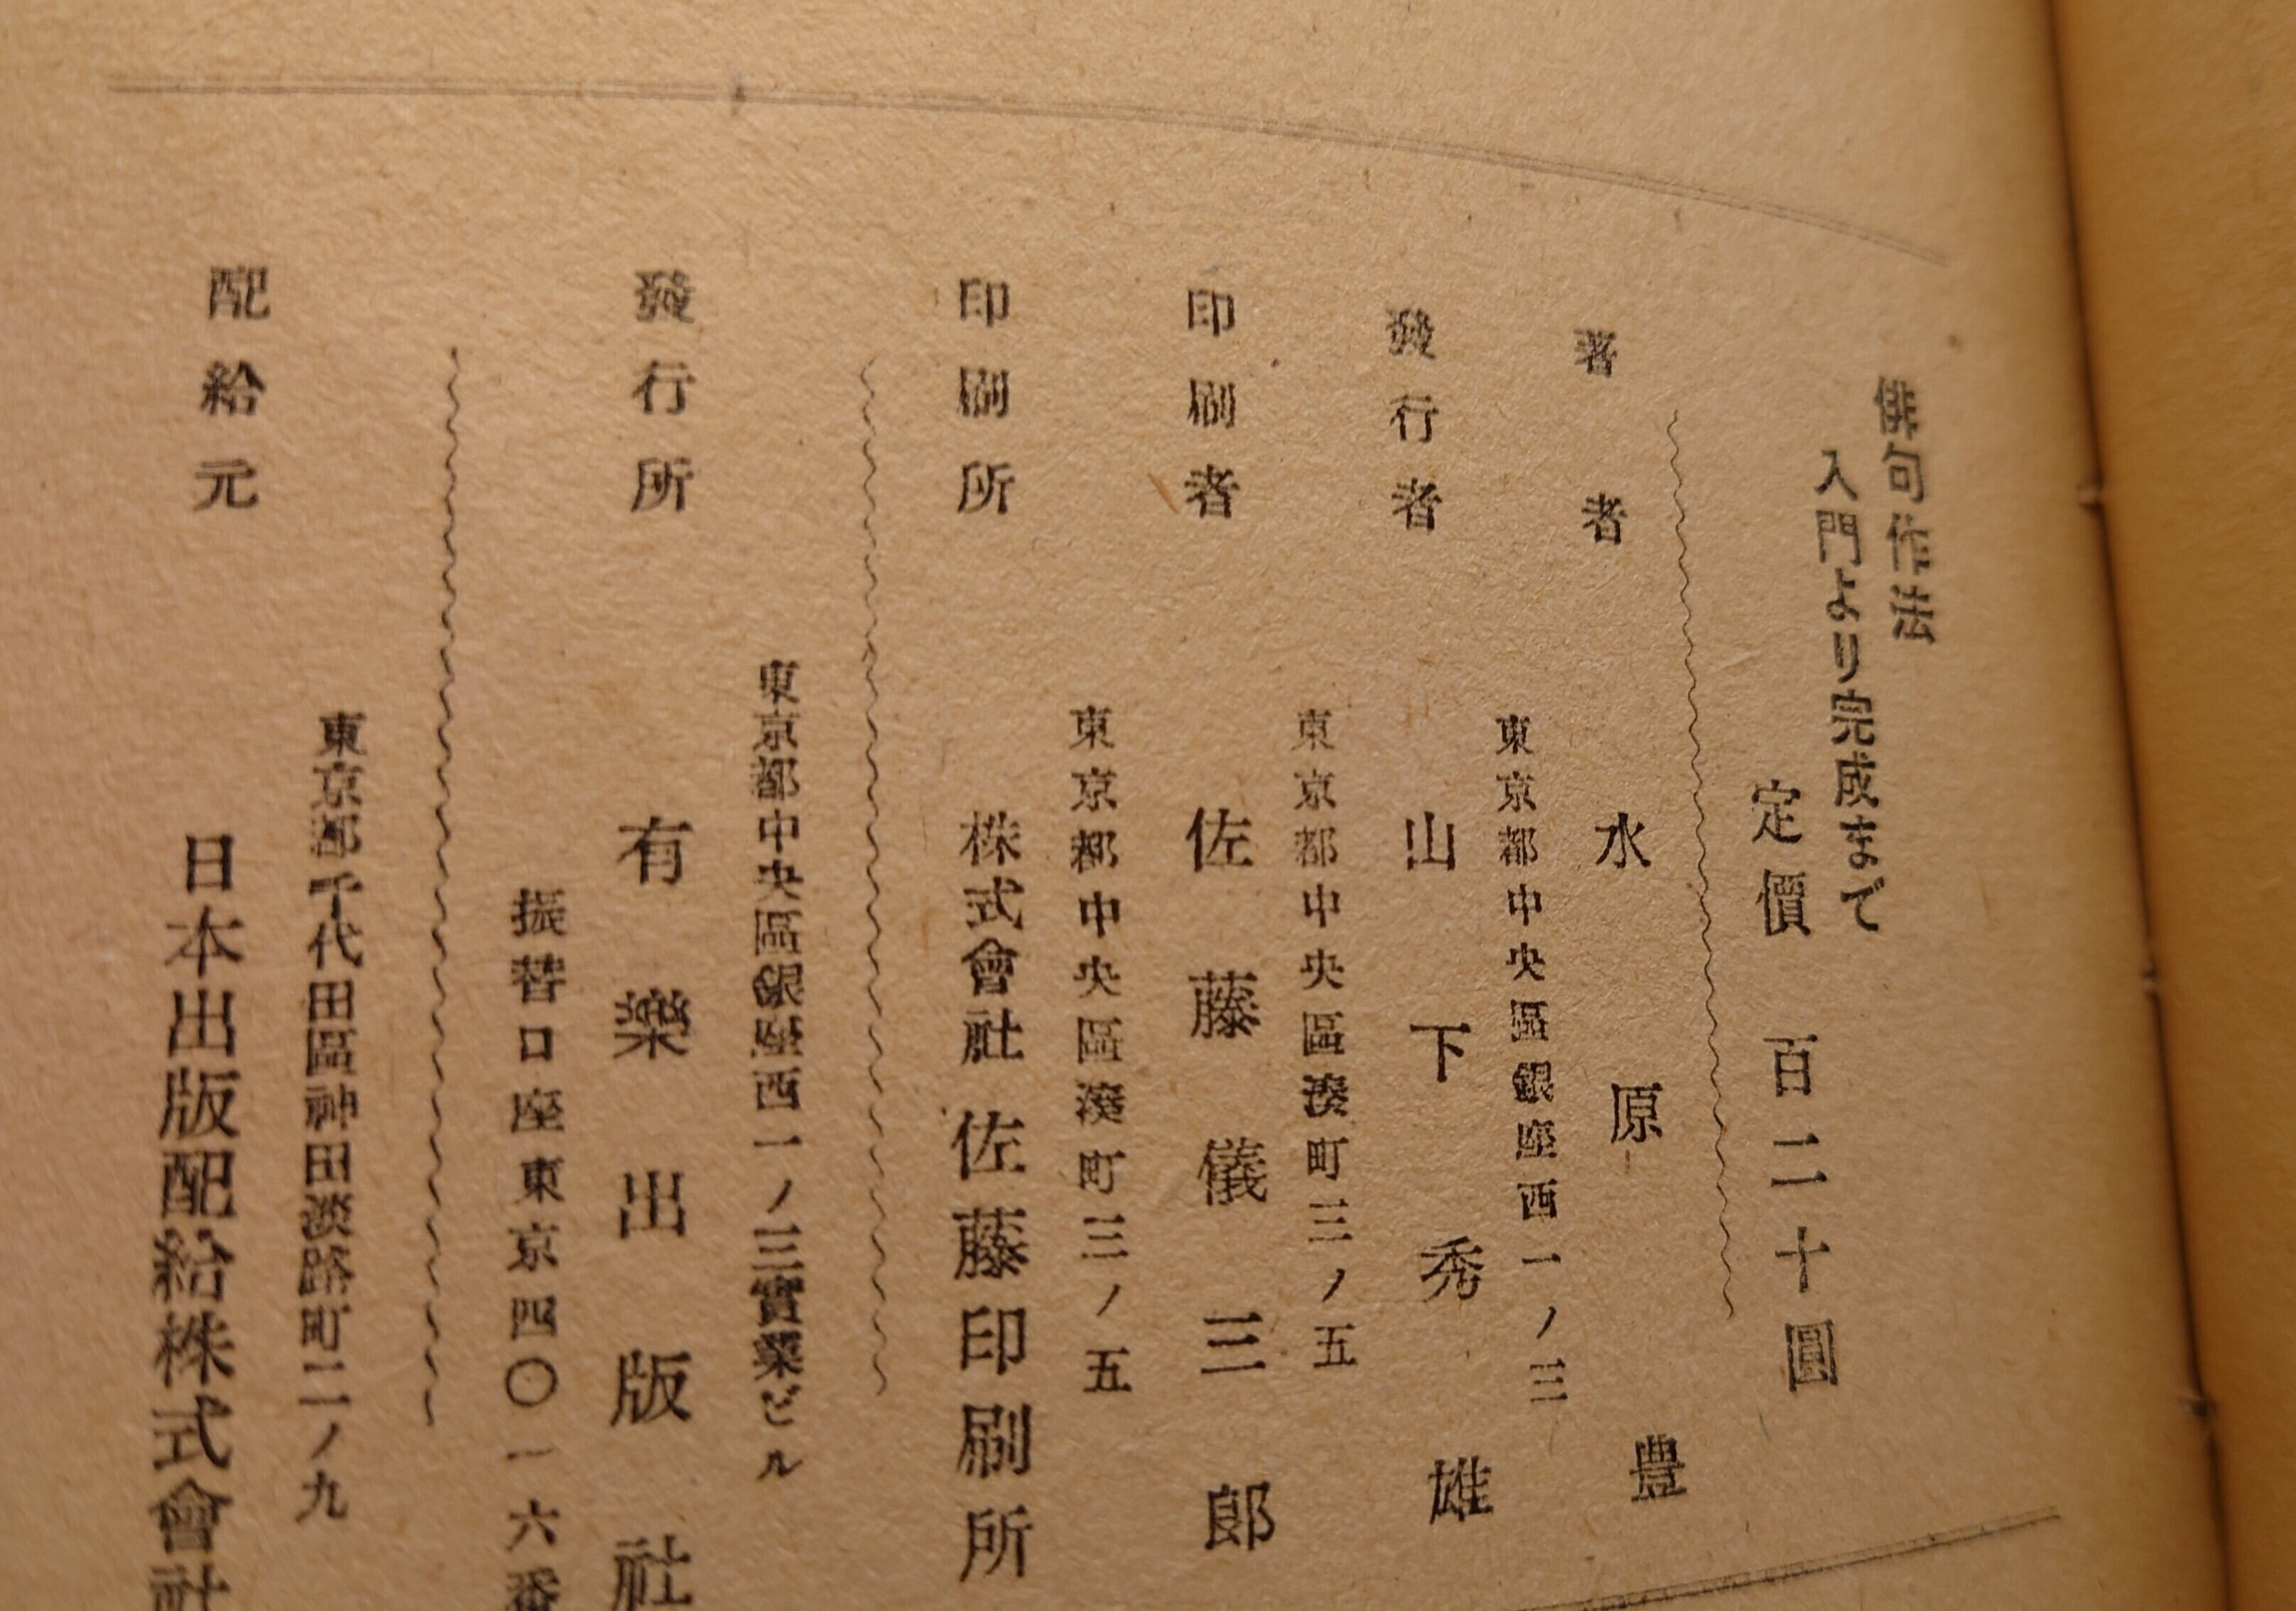 俳句作法
入門より完成まで
定價 百二十圓
著者 水原豊
東京都中央區銀座西一ノ三
發行者 山下秀雄
東京都中央區湊町三ノ五
印刷者 佐藤儀三郎
東京都中央區湊町三ノ五
印刷所 株式會社佐藤印刷所
東京都中央區銀座西一ノ三實業ビル
發行所 有樂出版社
振替口座東京四〇一六番
東京都千代田區神田淡路町二ノ九
配給元 日本出版配給株式會社